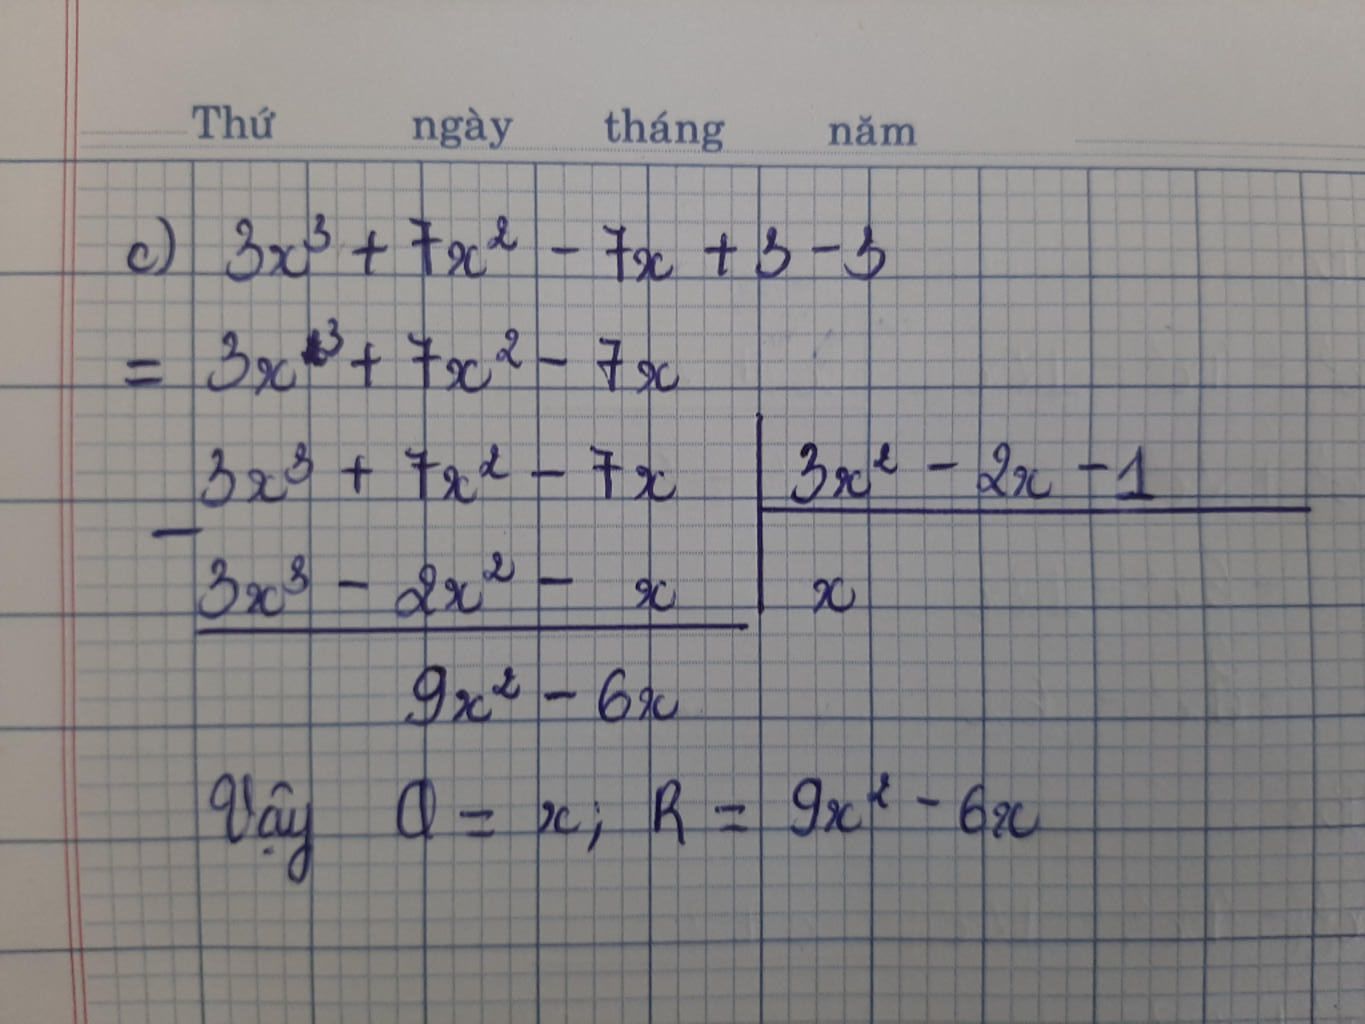 Thứ ngày tháng năm
c) 3x³ + 7x² - 7x + 3 - 3
= 3x³ + 7x² - 7x
3x³ + 7x² - 7x | 3x² - 2x - 1
-
3x³ - 2x² - x | x
9x² - 6x
Vậy Q = x; R = 9x² - 6x